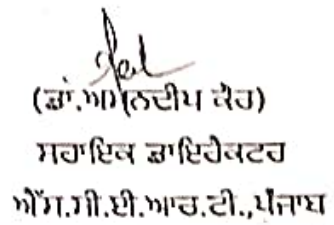 (ਡਾ.ਅਮਨਦੀਪ ਕੌਰ)
ਸਹਾਇਕ ਡਾਇਰੈਕਟਰ
ਐੱਸ.ਸੀ.ਈ.ਆਰ.ਟੀ.,ਪੰਜਾਬ